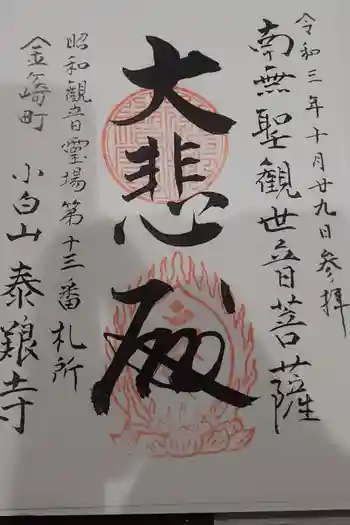 令和三年十月廿九日参拝
南無聖観世音菩薩
大悲殿
昭和観音霊場第十三番札所
金ヶ崎町 小白山 泰艱寺